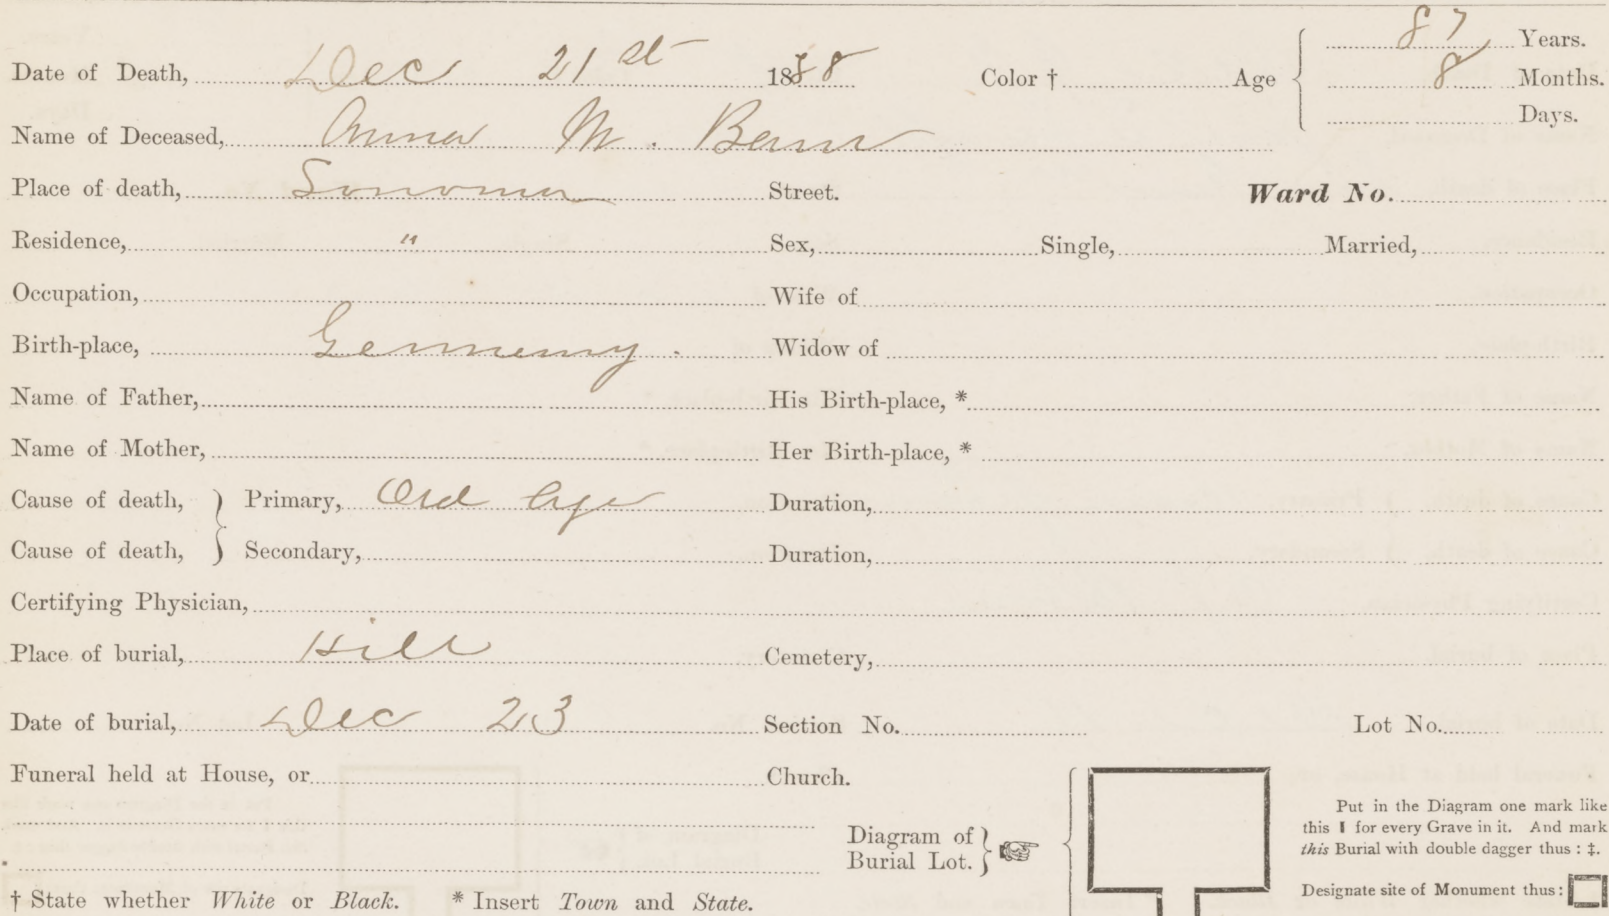 87 Years.
Date of Death, Dec 21st 1888 Color † Age 8 Months.
Days.
Name of Deceased, Anna M.
Place of death, Sonoma Street. Ward No.
Residence, " Sex, Single, Married,
Occupation, Wife of
Birth-place, Germany. Widow of
Name of Father, His Birth-place, *
Name of Mother, Her Birth-place, *
Cause of death, } Primary, Old Age Duration,
Cause of death, } Secondary, Duration,
Certifying Physician,
Place of burial, Hill Cemetery,
Date of burial, Dec 23 Section No. Lot No.
Funeral held at House, or Church.
Put in the Diagram one mark like
this ❙ for every Grave in it. And mark
this Burial with double dagger thus : ‡.
Diagram of
Burial Lot. }
Designate site of Monument thus :
† State whether White or Black. * Insert Town and State.